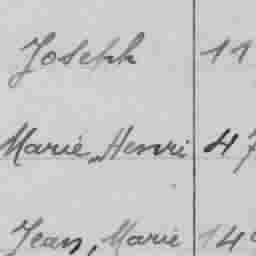 Joseph 11
Marie, Henri 47
Jean, Marie 14